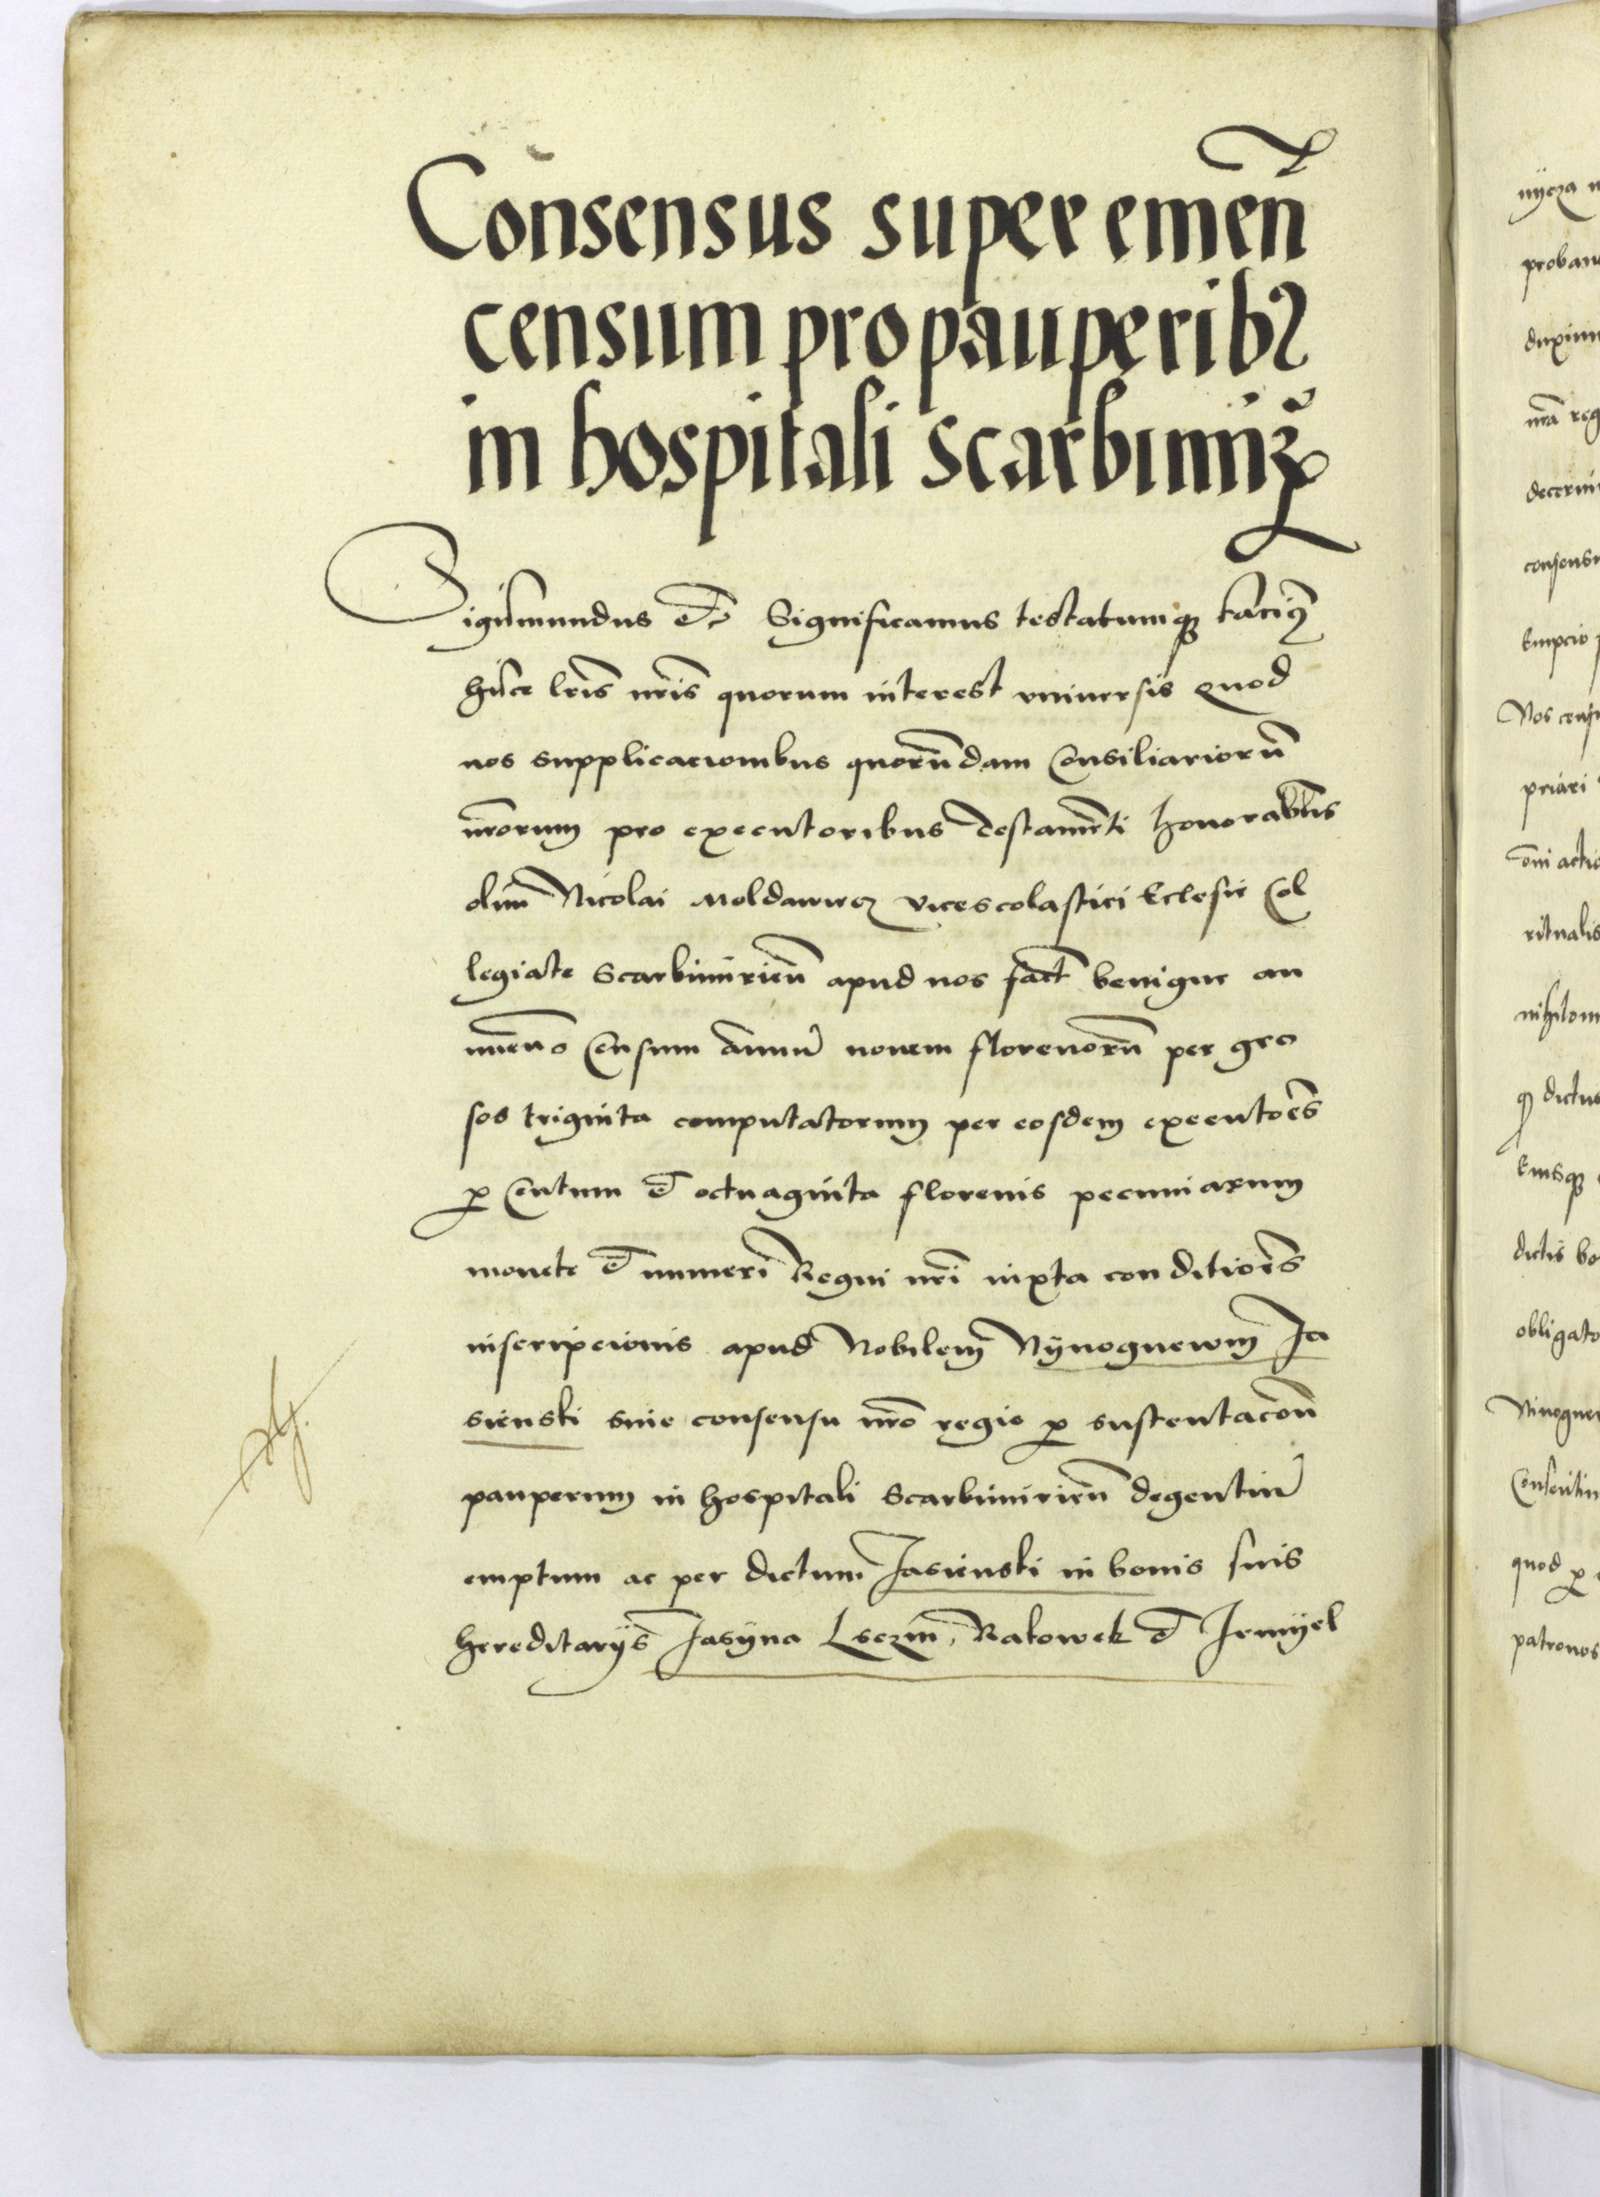 Consensus super emen̄
censum pro pauperibꝫ
in hospitali Scarbimirꝫ
Sigismundus etc Significamus testatumqꝫ facimꝰ
hisce lr̄is nr̄is quorum interest vniuersis Quod
nos supplicacionibus quorūdam Consiliariorū
nr̄orum pro executoribus Testamēti honorabilis
olim Nicolai Moldawiecz vicescolastici Eclesie Col
legiate Scarbimirien̄ apud nos fact̄ benigne an
nuen̄o Censum Annuū nouem florenorū per gros
sos triginta computatorum per eosdem executor̄es
ꝓ Centum et octuaginta florenis pecuniarum
monete et numeri Regni nr̄i iuxta conditiōes
inscripcionis apud Nobilem Nynognewm Ja
sienski sine consensu nr̄o regio ꝓ sustentacōn̄
pauperum in hospitali Scarbimirien̄ degentiū
emptum ac per dictum Jasienski in bonis suis
hereditarijs Jasyna Lsczin, Rakowek et Jemyel
nycza
proban
duxim
nr̄a reg
decerni
consensu
Empcio
Nos
priari
om̄i actio
ritualis
nihilom
dictus
Eiusqꝫ
dictis bo
obligato
Ninogne
Consentin
quod ꝓ
patronos